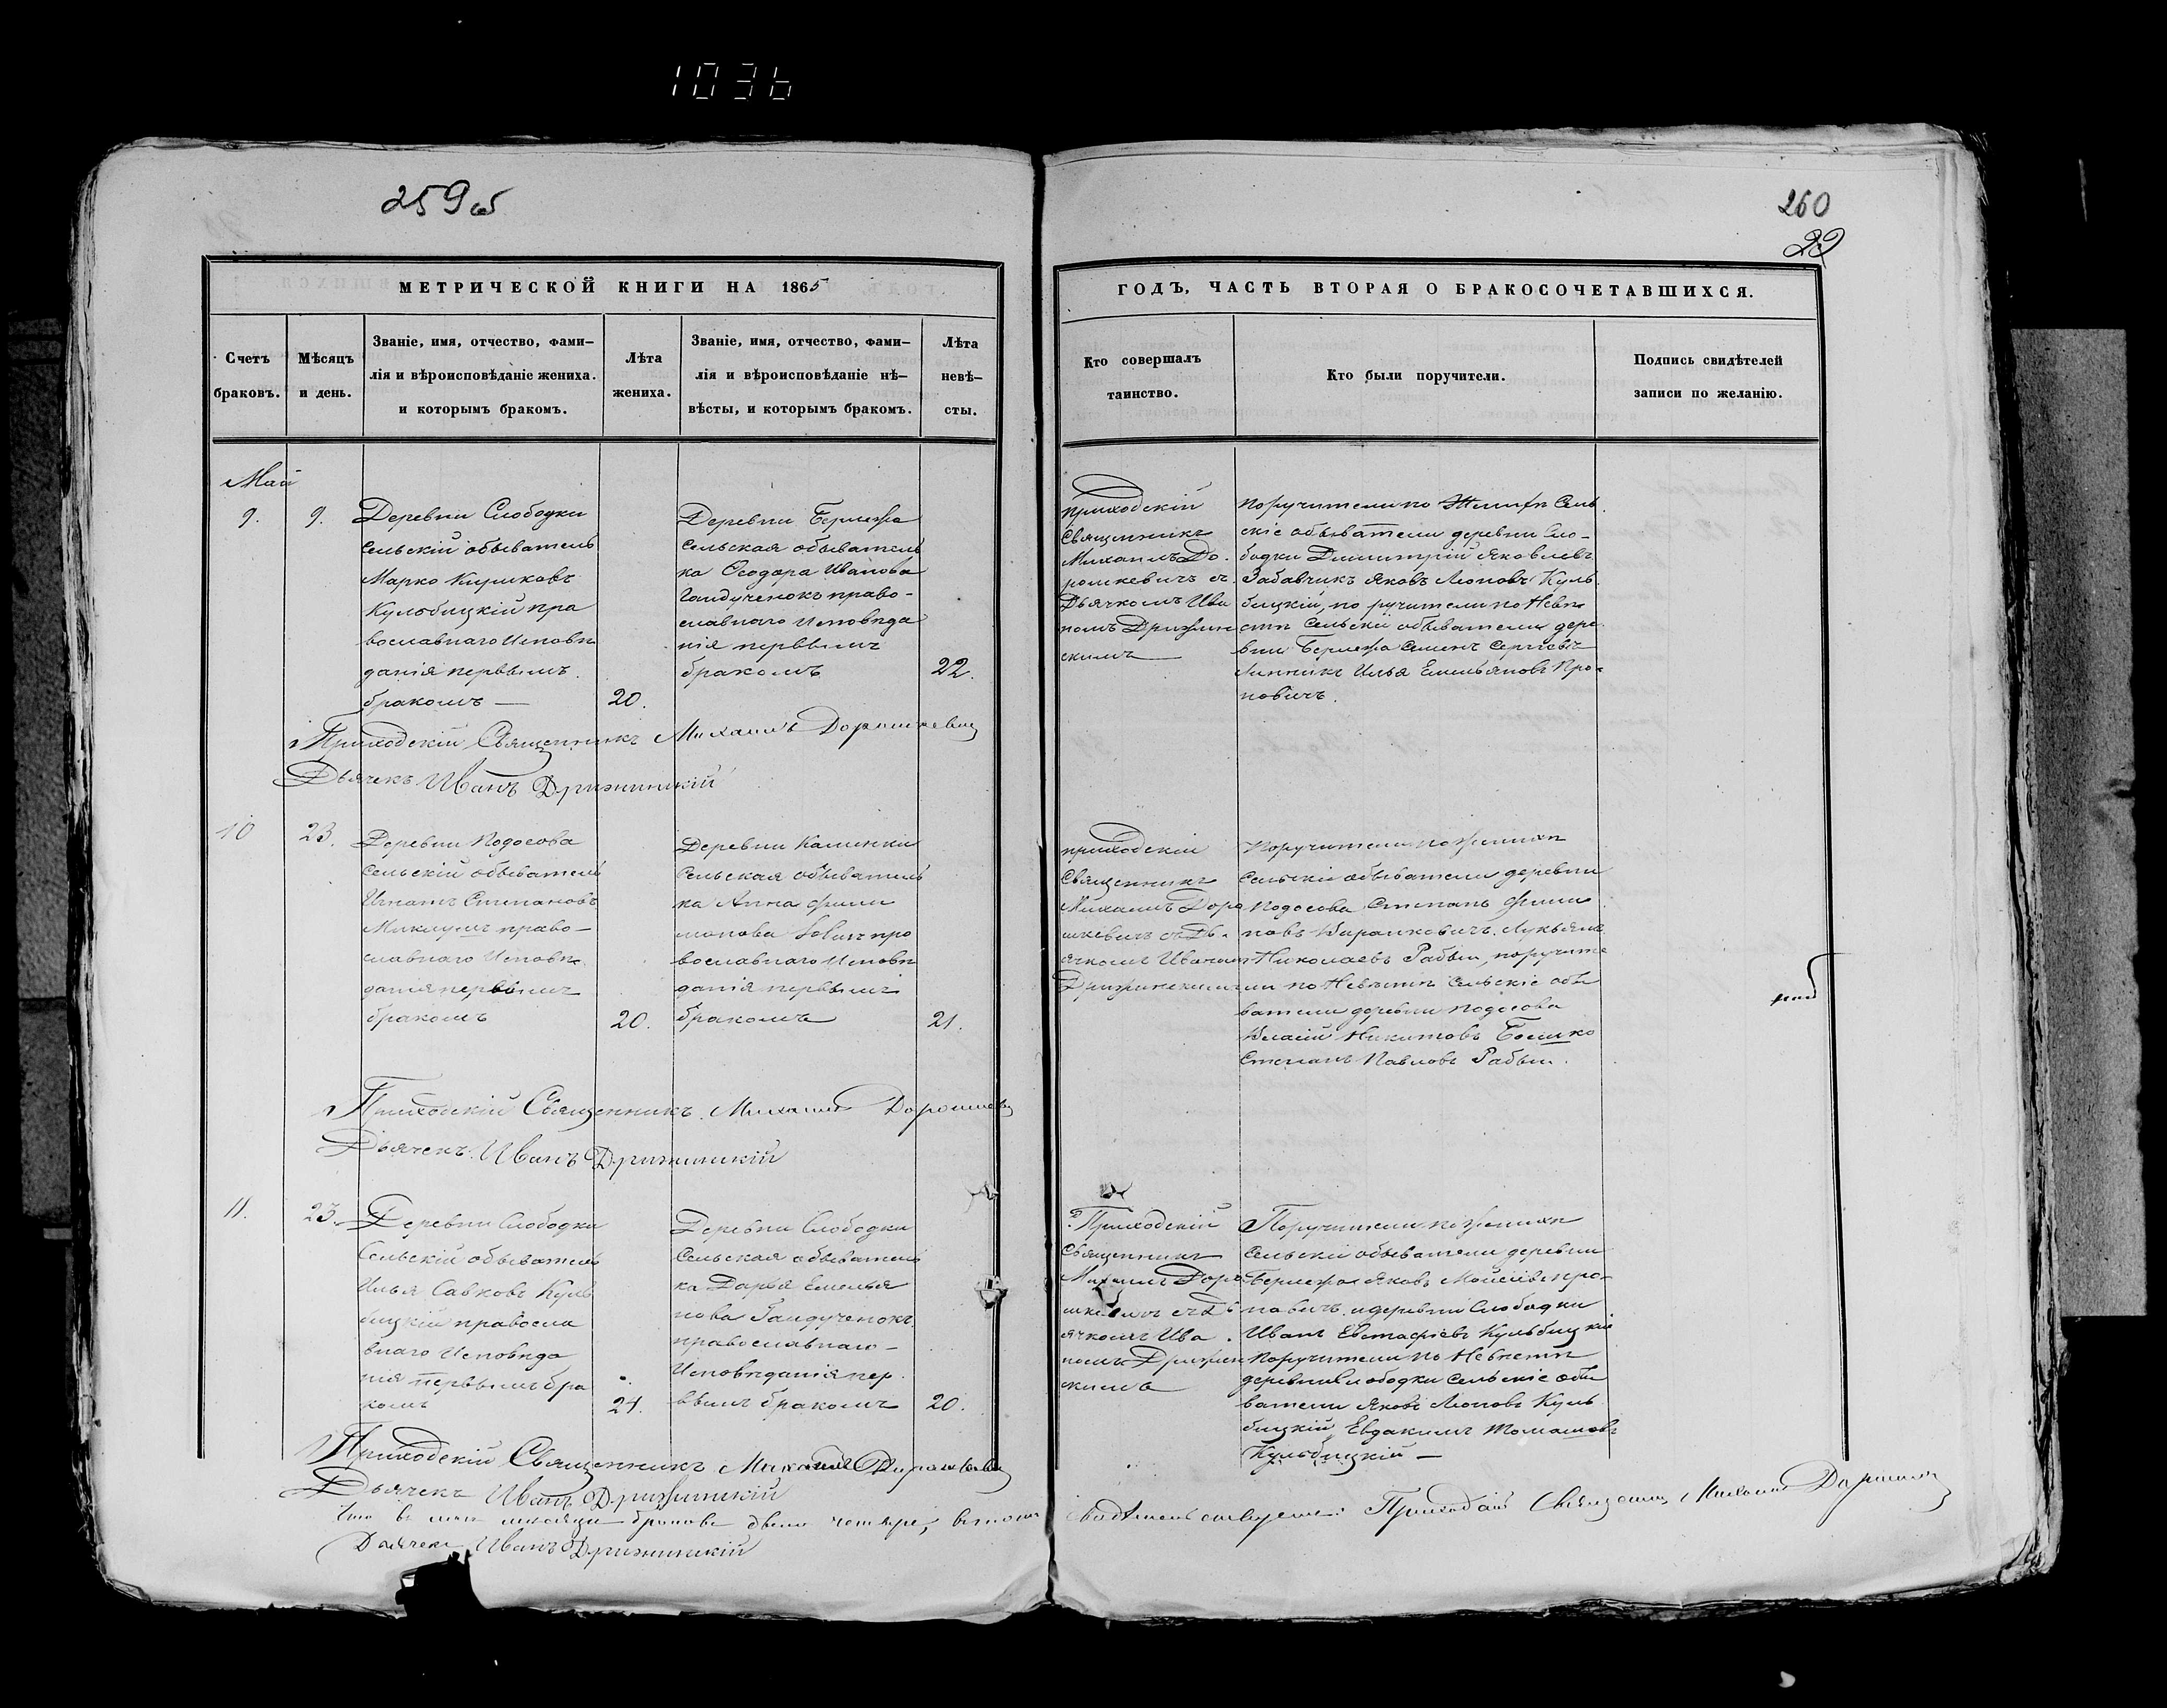 1036
259об
260
29
МЕТРИЧЕСКОЙ КНИГИ НА 1865
Счетъ
браковъ.
Мѣсяцъ
и день.
Званіе, имя, отчество, фами–
лія и вѣроисповѣданіе жениха.
и которымъ бракомъ.
Лѣта
жениха.
Званіе, имя, отчество, фами–
лія и вѣроисповѣданіе нѣ–
вѣсты, и которымъ бракомъ.
Лѣта
невѣ–
сты.
ГОДЪ, ЧАСТЬ ВТОРАЯ О БРАКОСОЧЕТАВШИХСЯ.
Кто совершалъ
таинство.
Кто были поручители.
Подпись свидѣтелей
записи по желанію.
Май
9.
9.
Деревни Слободки
Сельскій обыватель
Марко
Кульбицкій пра
вославнаго Исповѣ
данія первымъ
бракомъ —
20.
Деревни Бережа
Сельская обыватель
ка Ѳеодора Иванова
Гайдученокъ право–
славнаго Исповѣда
нія первымъ
бракомъ
22.
приходскій
Священникъ
Михаилъ До.
рошкевичъ съ
Дьячкомъ Ива
номъ Дрижин
скимъ —
поручители по Женихѣ Сель
скіе обыватели деревни Сло–
бодки Димитрій Яковлевъ
Забавчикъ Яковъ Леоновъ Куль
бицкій, по ручители по Невѣ
стѣ Сельскіе обыватели дере
вни Бережа Семенъ
Линникъ Илья Емельяновъ Про–
повичъ.
Приходскій Священникъ Михаилъ Дорошкевичъ
Дьячекъ Иванъ Дрижинскій
10
23.
Деревни Подосова
Сельскій обыватель
Игнатъ Степановъ
право–
славнаго Исповѣ
данія первымъ
бракомъ
20.
Деревни Калинки
Сельская обыватель
ка Анна Фили
монова пра
вославнаго Исповѣ
данія первымъ
бракомъ
21.
приходскій
Священникъ
Михаилъ Доро
шкевичъ съ Дь.
ячкомъ Иваномъ
Дрижинскимъ
Поручители по женихѣ
Сельскіе обыватели деревни
Подосова Степанъ Фили
повъ Лукьянъ
Николаевъ Рабый, поручите
ли по Невѣстѣ Сельскіе обы
ватели деревни Подосова
Власій Никитовъ Бошко
Степанъ Павловъ Рабый.
Приходскій Священникъ Михаилъ Дорошкевичъ
Дьячекъ Иванъ Дрижинскій
11.
23.
Деревни Слободки
Сельскій обыватель
Илья Савковъ Куль
бицкій правосла
внаго Исповѣда
нія первымъ бра
комъ
21.
Деревни Слободки
Сельская обыватель
ка Дарья Емелья
нова Гайдученокъ
православнаго –
Исповѣданія пер.
вымъ бракомъ
20.
Приходскій
Священникъ
Михаилъ Доро
шкевичъ съ Дь
ячкомъ Ива
номъ Дрижин
скимъ
Поручители по женихѣ
Сельскіе обыватели деревни
Бережа Яковъ Моисѣевъ Про–
повичъ и деревни Слободки
Иванъ Евстафіевъ Кульбицкій
Поручители по Невѣстѣ
деревни Слободки Сельскіе обы
ватели Яковъ Леоновъ Куль
бицкій, Евдакимъ Томашовъ
Кульбицкій —
Приходскій Священникъ Михаилъ Дорошкевичъ
Дьячекъ Иванъ Дрижинскій
Что въ маѣ мѣсяцѣ браковъ было четыре, въ томъ свидѣтельствуемъ: Приходскій Священникъ Михаилъ Дорошкевичъ
Дьячекъ Иванъ Дрижинскій